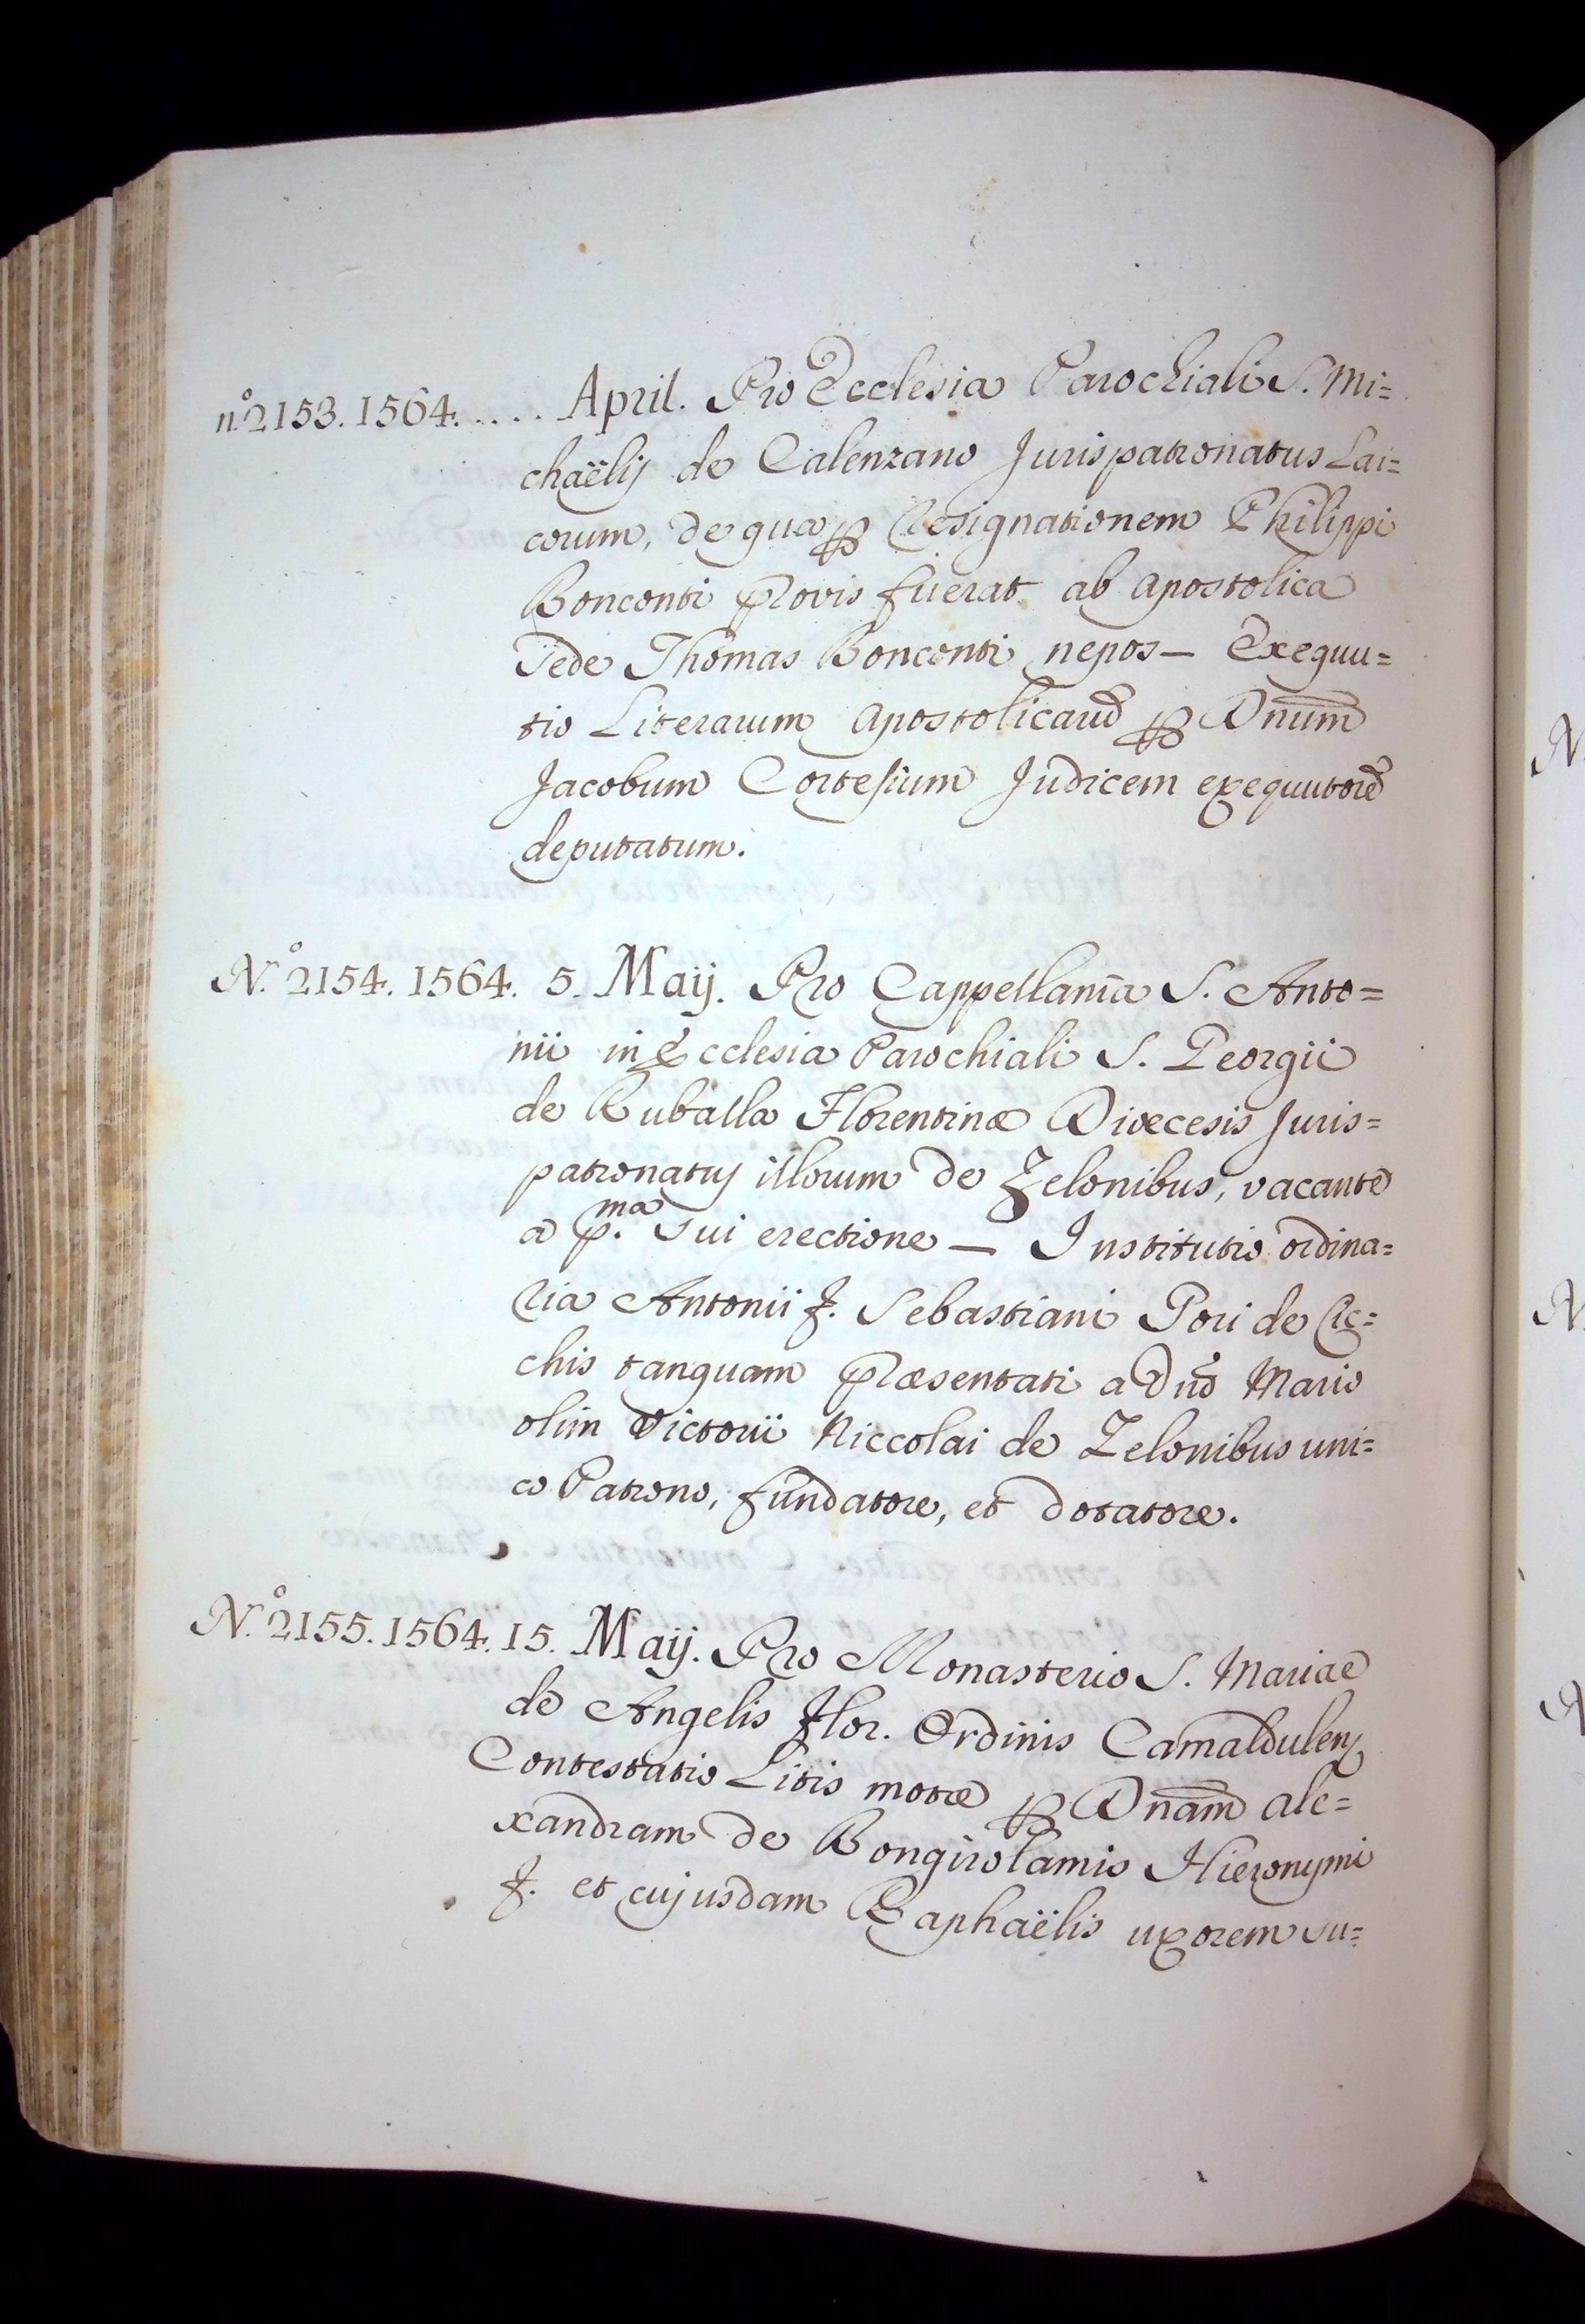 n.º 2153. 1564. .... April. Pro Ecclesia Parochiali S. Mi=
chaëlis de Calenzano Jurispatronatus Lai=
corum, de qua per Resignationem Philippi
Bonconti provis fuerat ab Apostolica
Sede Thomas Bonconti nepos — Exequu=
tio Literarum Apostolicarũ per Dnum̃
Jacobum Cortesium Judicem exequutorẽ
deputatum.
N.º 2154. 1564. 5. Maÿ. Pro Cappellania S. Anto=
nii in Ecclesia Parochiali S. Georgii
de Ruballa Florentinæ Diœcesis Juris=
patronatus illorum de Zelonibus, vacante
a p.ma sui erectione — Institutio ordina=
ria Antonii f. Sebastiani Pori de Ric=
chis tanquam præsentati a Dnõ Mario
olim Victorii Niccolai de Zelonibus uni=
co Patrono, fundatore, et dotatore.
N.º 2155. 1564. 15. Maÿ. Pro Monasterio S. Mariae
de Angelis Flor. Ordinis Camaldulens
Contestatio Litis motæ per Dnam̃ Ale=
xandram de Bongirolamis Hieronymi
f. et cujusdam Raphaëlis uxorem su=